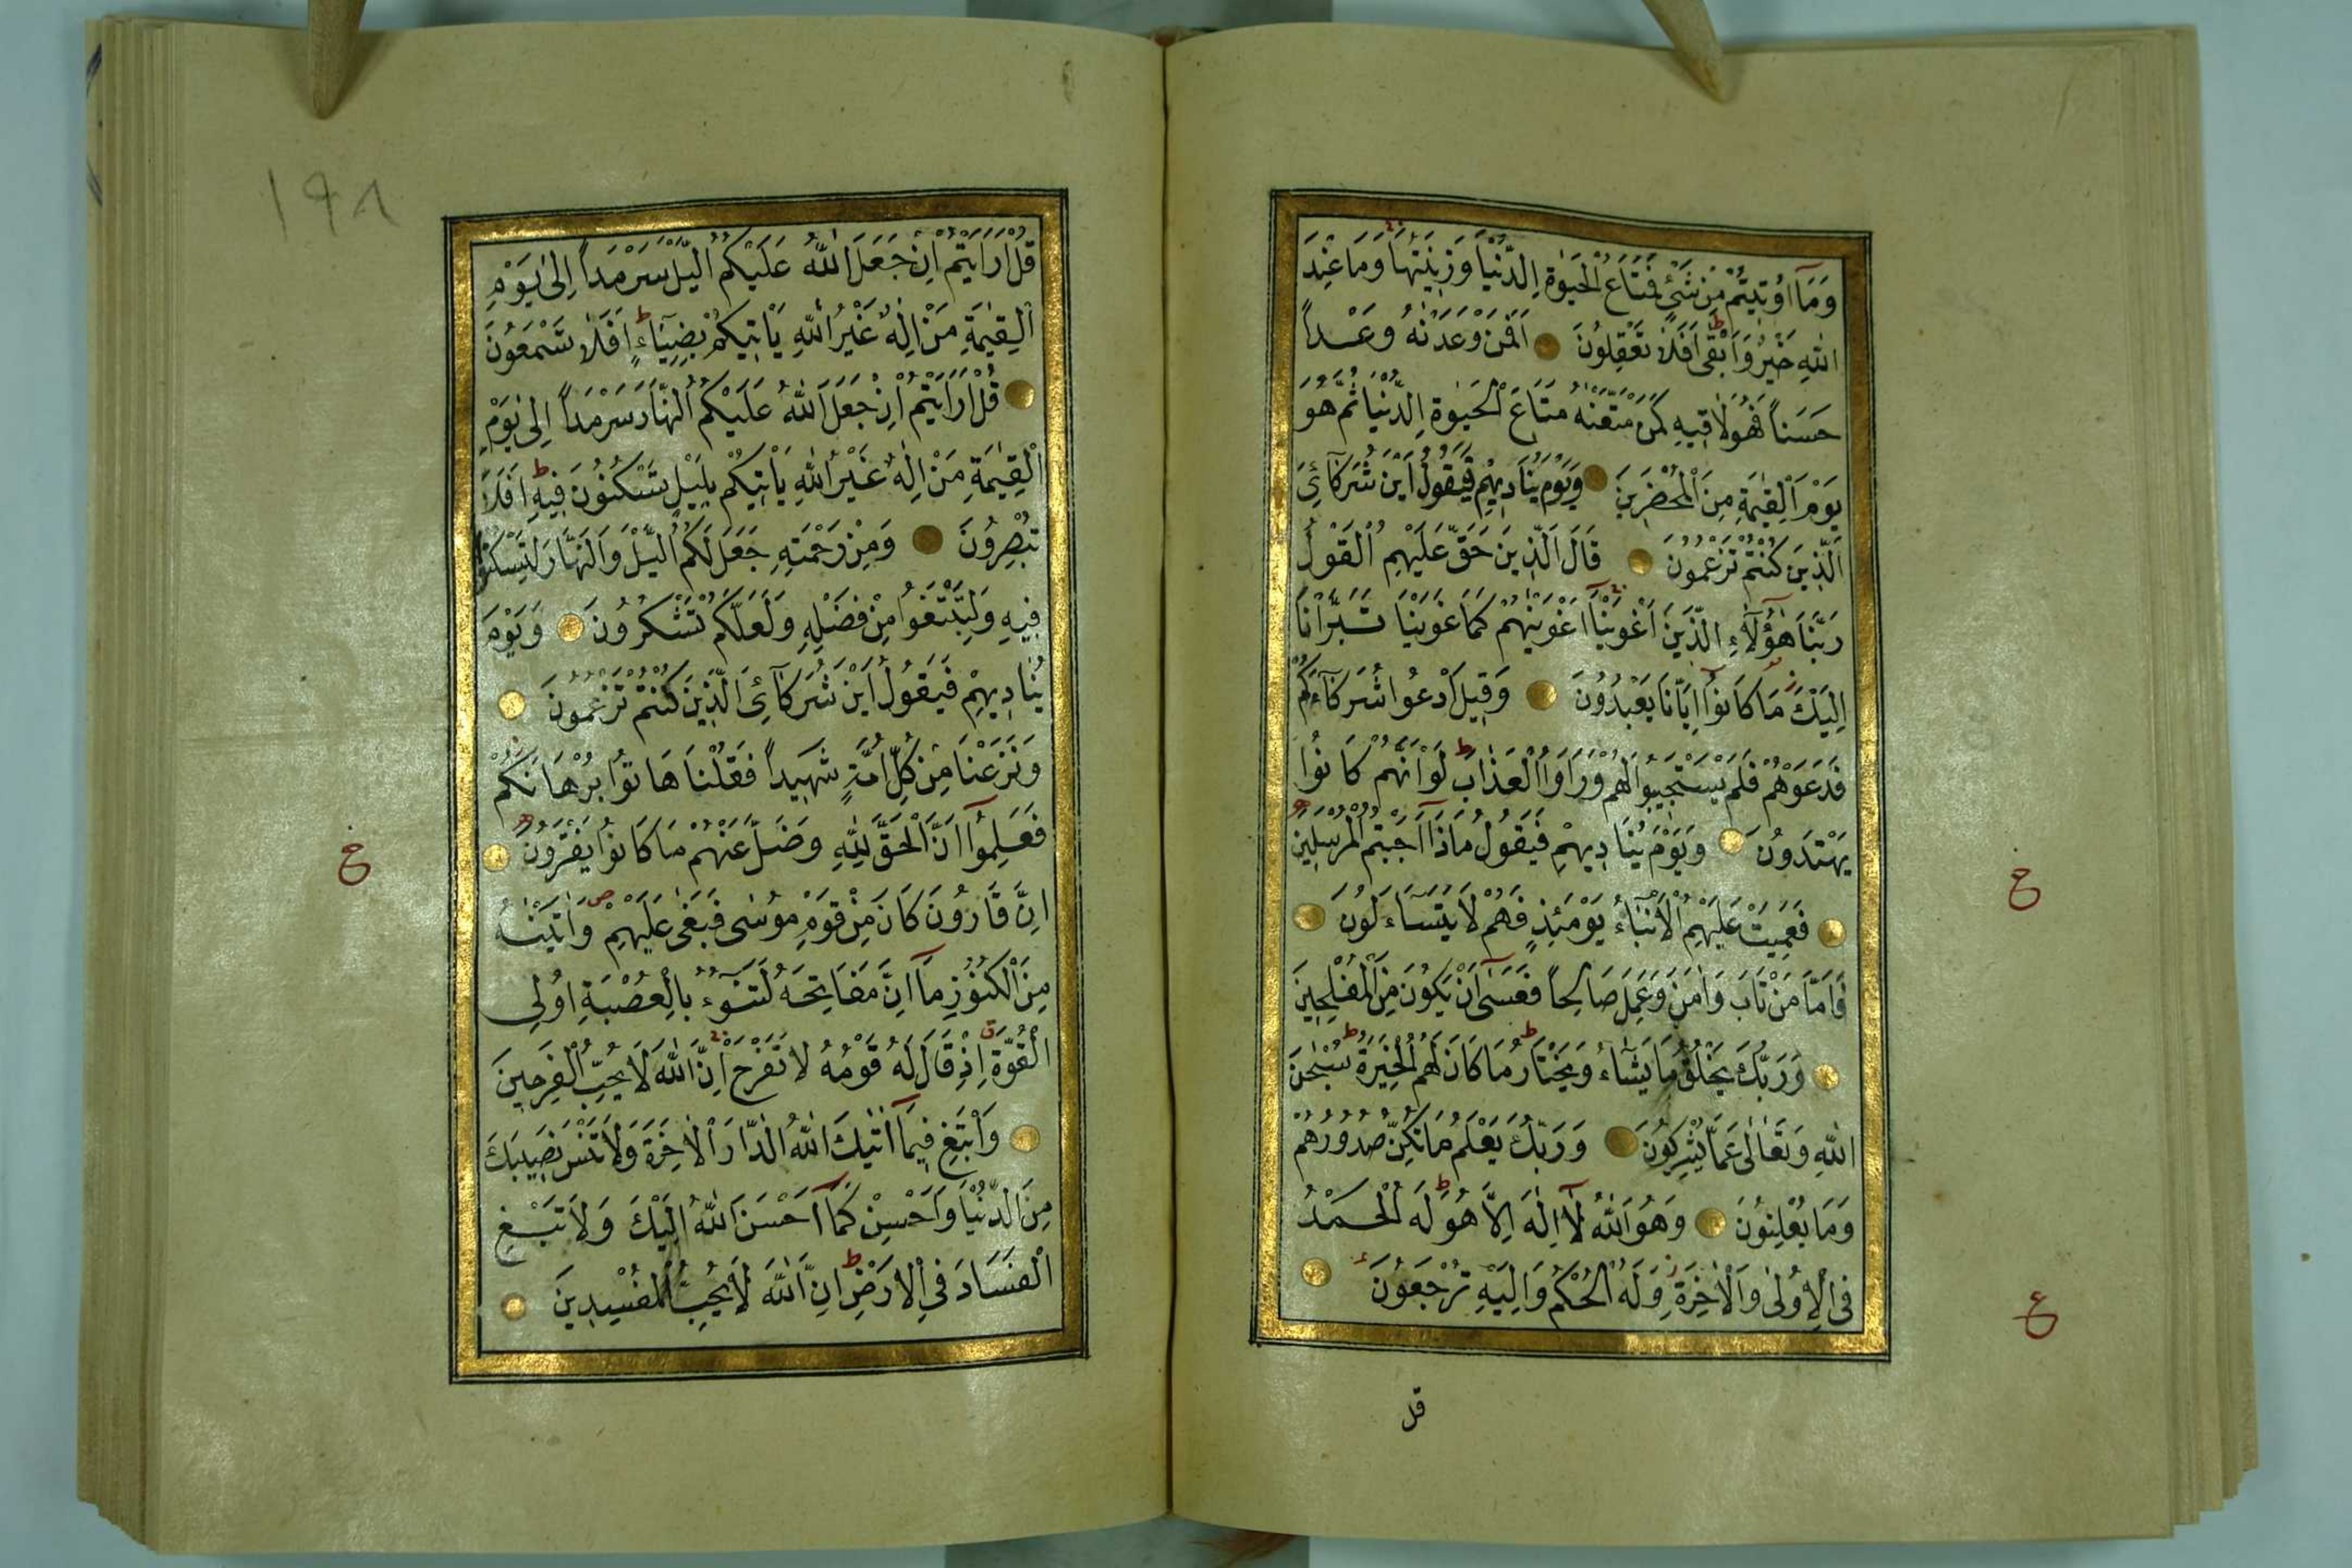 وَمَآ اُوتِيتُمْ مِنْ شَيْءٍ فَمَتَاعُ الْحَيٰوةِ الدُّنْيَا وَزِينَتُهَا وَمَا عِنْدَ
اللّٰهِ خَيْرٌ وَاَبْقٰى اَفَلَا تَعْقِلُونَ اَفَمَنْ وَعَدْنٰهُ وَعْداً
حَسَناً فَهُوَ لَاقِيهِ كَمَنْ مَتَّعْنٰهُ مَتَاعَ الْحَيٰوةِ الدُّنْيَا ثُمَّ هُوَ
يَوْمَ الْقِيٰمَةِ مِنَ الْمُحْضَرِينَ وَيَوْمَ يُنَادِيهِمْ فَيَقُولُ اَيْنَ شُرَكَآئِيَ
الَّذِينَ كُنْتُمْ تَزْعُمُونَ قَالَ الَّذِينَ حَقَّ عَلَيْهِمُ الْقَوْلُ
رَبَّنَا هٰٓؤُلَآءِ الَّذِينَ اَغْوَيْنَا اَغْوَيْنٰهُمْ كَمَا غَوَيْنَا تَبَرَّاْنَا
اِلَيْكَ مَا كَانُوٓا اِيَّانَا يَعْبُدُونَ وَقِيلَ ادْعُوا شُرَكَآءَكُمْ
فَدَعَوْهُمْ فَلَمْ يَسْتَجِيبُوا لَهُمْ وَرَاَوُا الْعَذَابَ لَوْ اَنَّهُمْ كَانُوا
يَهْتَدُونَ وَيَوْمَ يُنَادِيهِمْ فَيَقُولُ مَاذَآ اَجَبْتُمُ الْمُرْسَلِينَ
فَعَمِيَتْ عَلَيْهِمُ الْاَنْبَآءُ يَوْمَئِذٍ فَهُمْ لَا يَتَسَآءَلُونَ
فَاَمَّا مَنْ تَابَ وَاٰمَنَ وَعَمِلَ صَالِحاً فَعَسٰٓى اَنْ يَكُونَ مِنَ الْمُفْلِحِينَ
وَرَبُّكَ يَخْلُقُ مَا يَشَآءُ وَيَخْتَارُ مَا كَانَ لَهُمُ الْخِيَرَةُ سُبْحٰنَ
اللّٰهِ وَتَعَالٰى عَمَّا يُشْرِكُونَ وَرَبُّكَ يَعْلَمُ مَا تُكِنُّ صُدُورُهُمْ
وَمَا يُعْلِنُونَ وَهُوَ اللّٰهُ لَآ اِلٰهَ اِلَّا هُوَ لَهُ الْحَمْدُ
فِي الْاُولٰى وَالْاٰخِرَةِ وَلَهُ الْحُكْمُ وَاِلَيْهِ تُرْجَعُونَ
خ
ع
قل
١٩٨
قُلْ اَرَاَيْتُمْ اِنْ جَعَلَ اللّٰهُ عَلَيْكُمُ الَّيْلَ سَرْمَداً اِلٰى يَوْمِ
الْقِيٰمَةِ مَنْ اِلٰهٌ غَيْرُ اللّٰهِ يَاْتِيكُمْ بِضِيَآءٍ اَفَلَا تَسْمَعُونَ
قُلْ اَرَاَيْتُمْ اِنْ جَعَلَ اللّٰهُ عَلَيْكُمُ النَّهَارَ سَرْمَداً اِلٰى يَوْمِ
الْقِيٰمَةِ مَنْ اِلٰهٌ غَيْرُ اللّٰهِ يَاْتِيكُمْ بِلَيْلٍ تَسْكُنُونَ فِيهِ اَفَلَا
تُبْصِرُونَ وَمِنْ رَحْمَتِهِ جَعَلَ لَكُمُ الَّيْلَ وَالنَّهَارَ لِتَسْكُنُوا
فِيهِ وَلِتَبْتَغُوا مِنْ فَضْلِهِ وَلَعَلَّكُمْ تَشْكُرُونَ وَيَوْمَ
يُنَادِيهِمْ فَيَقُولُ اَيْنَ شُرَكَآئِيَ الَّذِينَ كُنْتُمْ تَزْعُمُونَ
وَنَزَعْنَا مِنْ كُلِّ اُمَّةٍ شَهِيداً فَقُلْنَا هَاتُوا بُرْهَانَكُمْ
فَعَلِمُوٓا اَنَّ الْحَقَّ لِلّٰهِ وَضَلَّ عَنْهُمْ مَا كَانُوا يَفْتَرُونَ
اِنَّ قَارُونَ كَانَ مِنْ قَوْمِ مُوسٰى فَبَغٰى عَلَيْهِمْ وَاٰتَيْنٰهُ
مِنَ الْكُنُوزِ مَآ اِنَّ مَفَاتِحَهُ لَتَنُوٓءُ بِالْعُصْبَةِ اُولِي
الْقُوَّةِ اِذْ قَالَ لَهُ قَوْمُهُ لَا تَفْرَحْ اِنَّ اللّٰهَ لَا يُحِبُّ الْفَرِحِينَ
وَابْتَغِ فِيمَآ اٰتٰيكَ اللّٰهُ الدَّارَ الْاٰخِرَةَ وَلَا تَنْسَ نَصِيبَكَ
مِنَ الدُّنْيَا وَاَحْسِنْ كَمَآ اَحْسَنَ اللّٰهُ اِلَيْكَ وَلَا تَبْغِ
الْفَسَادَ فِي الْاَرْضِ اِنَّ اللّٰهَ لَا يُحِبُّ الْمُفْسِدِينَ
خ